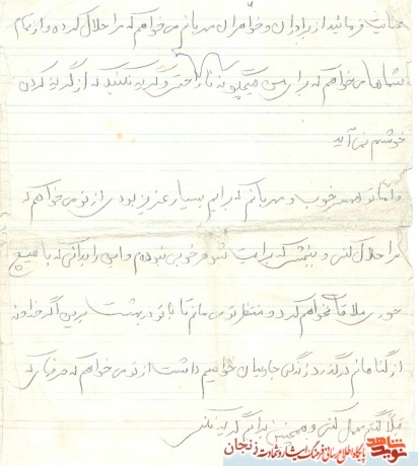 عنایت فرمائید از برادران و خواهران مهربانم می خواهم که مرا حلال کرده و از تمام
شماها می خواهم که برای من هیچگونه ناراحتی و گریه نکنید که از گریه کردن
خوشم نمی آید
و اما تو همسر خوب و مهربانم که برایم بسیار عزیز بودی از تو می خواهم که
مرا حلال کنی و ببخشی که برایت شوهر خوبی نبودم و این را بدانی که با هیچ
حوری ملاقات نخواهم کرد و منتظر تو می مانم تا با تو در بهشت برین اگر خداوند
از گناهانم درگذرد زندگی جاویدان خواهیم داشت از تو می خواهم که حرفهائی که
قبلا گفتم عمل کنی و همچنین برایم گریه نکنی
نوید شاهد
پایگاه اطلاع رسانی فرهنگ ایثار و شهادت زنجان